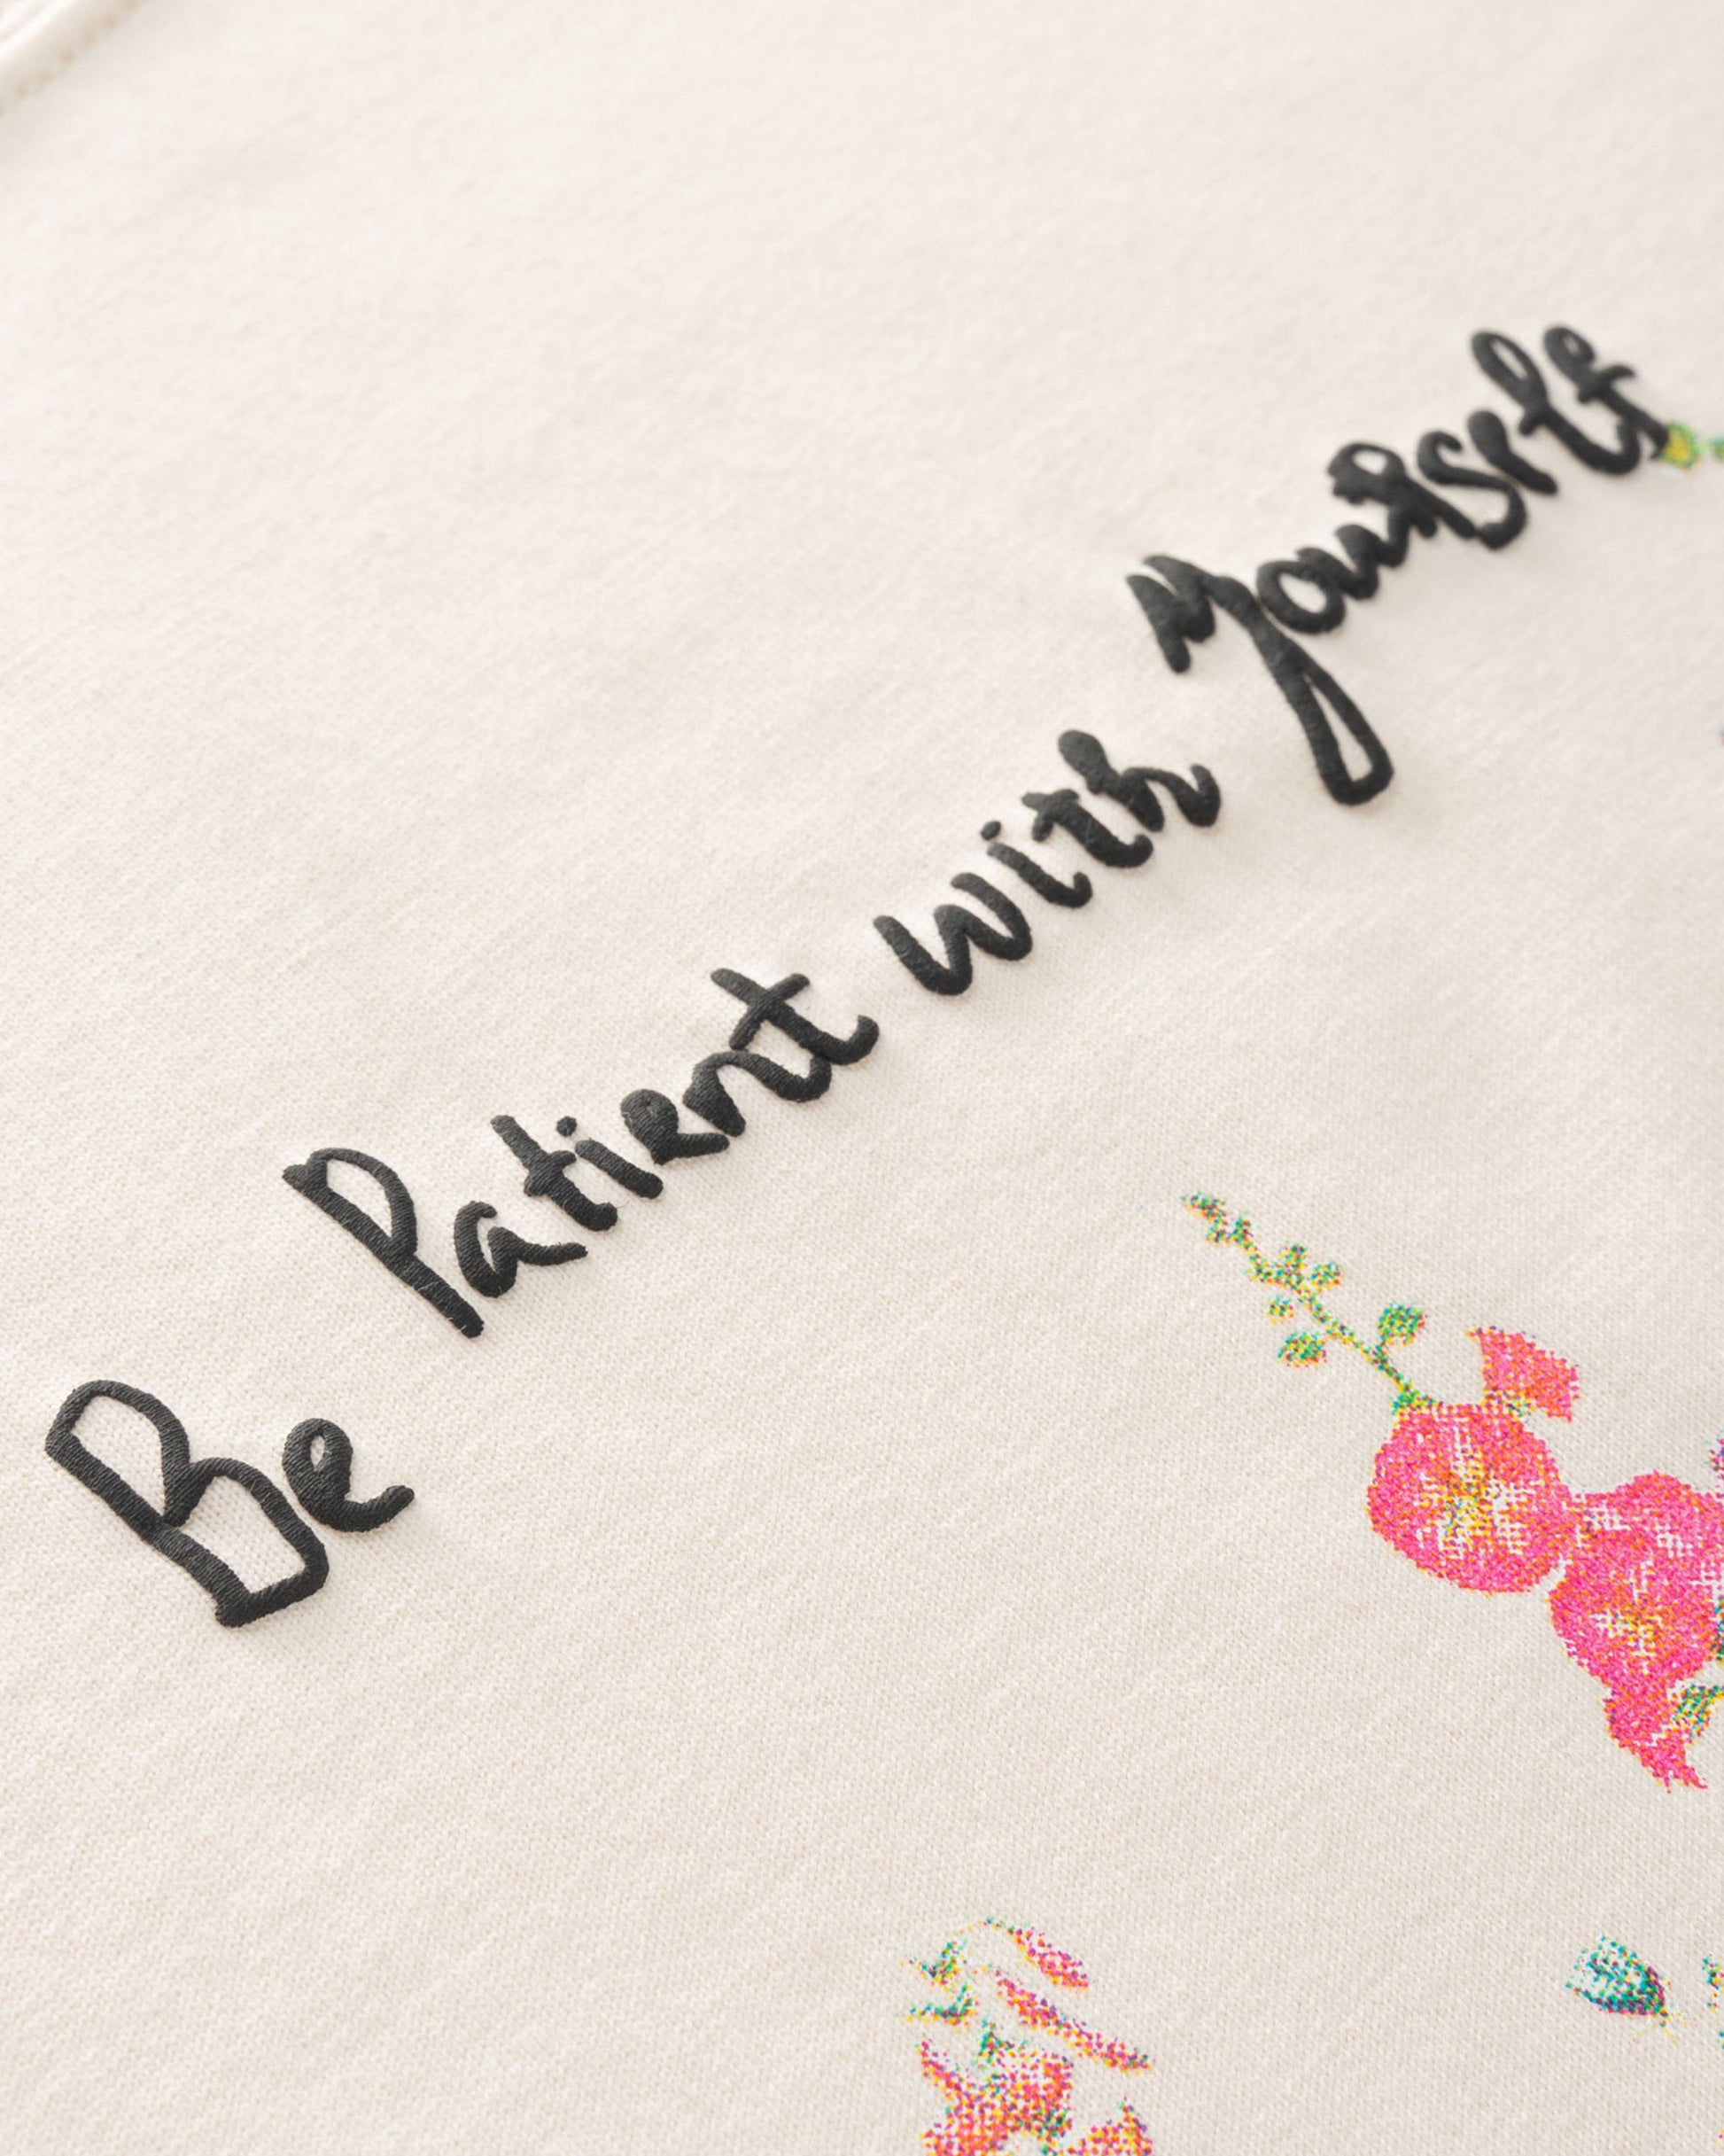 Be Patient with Yourself